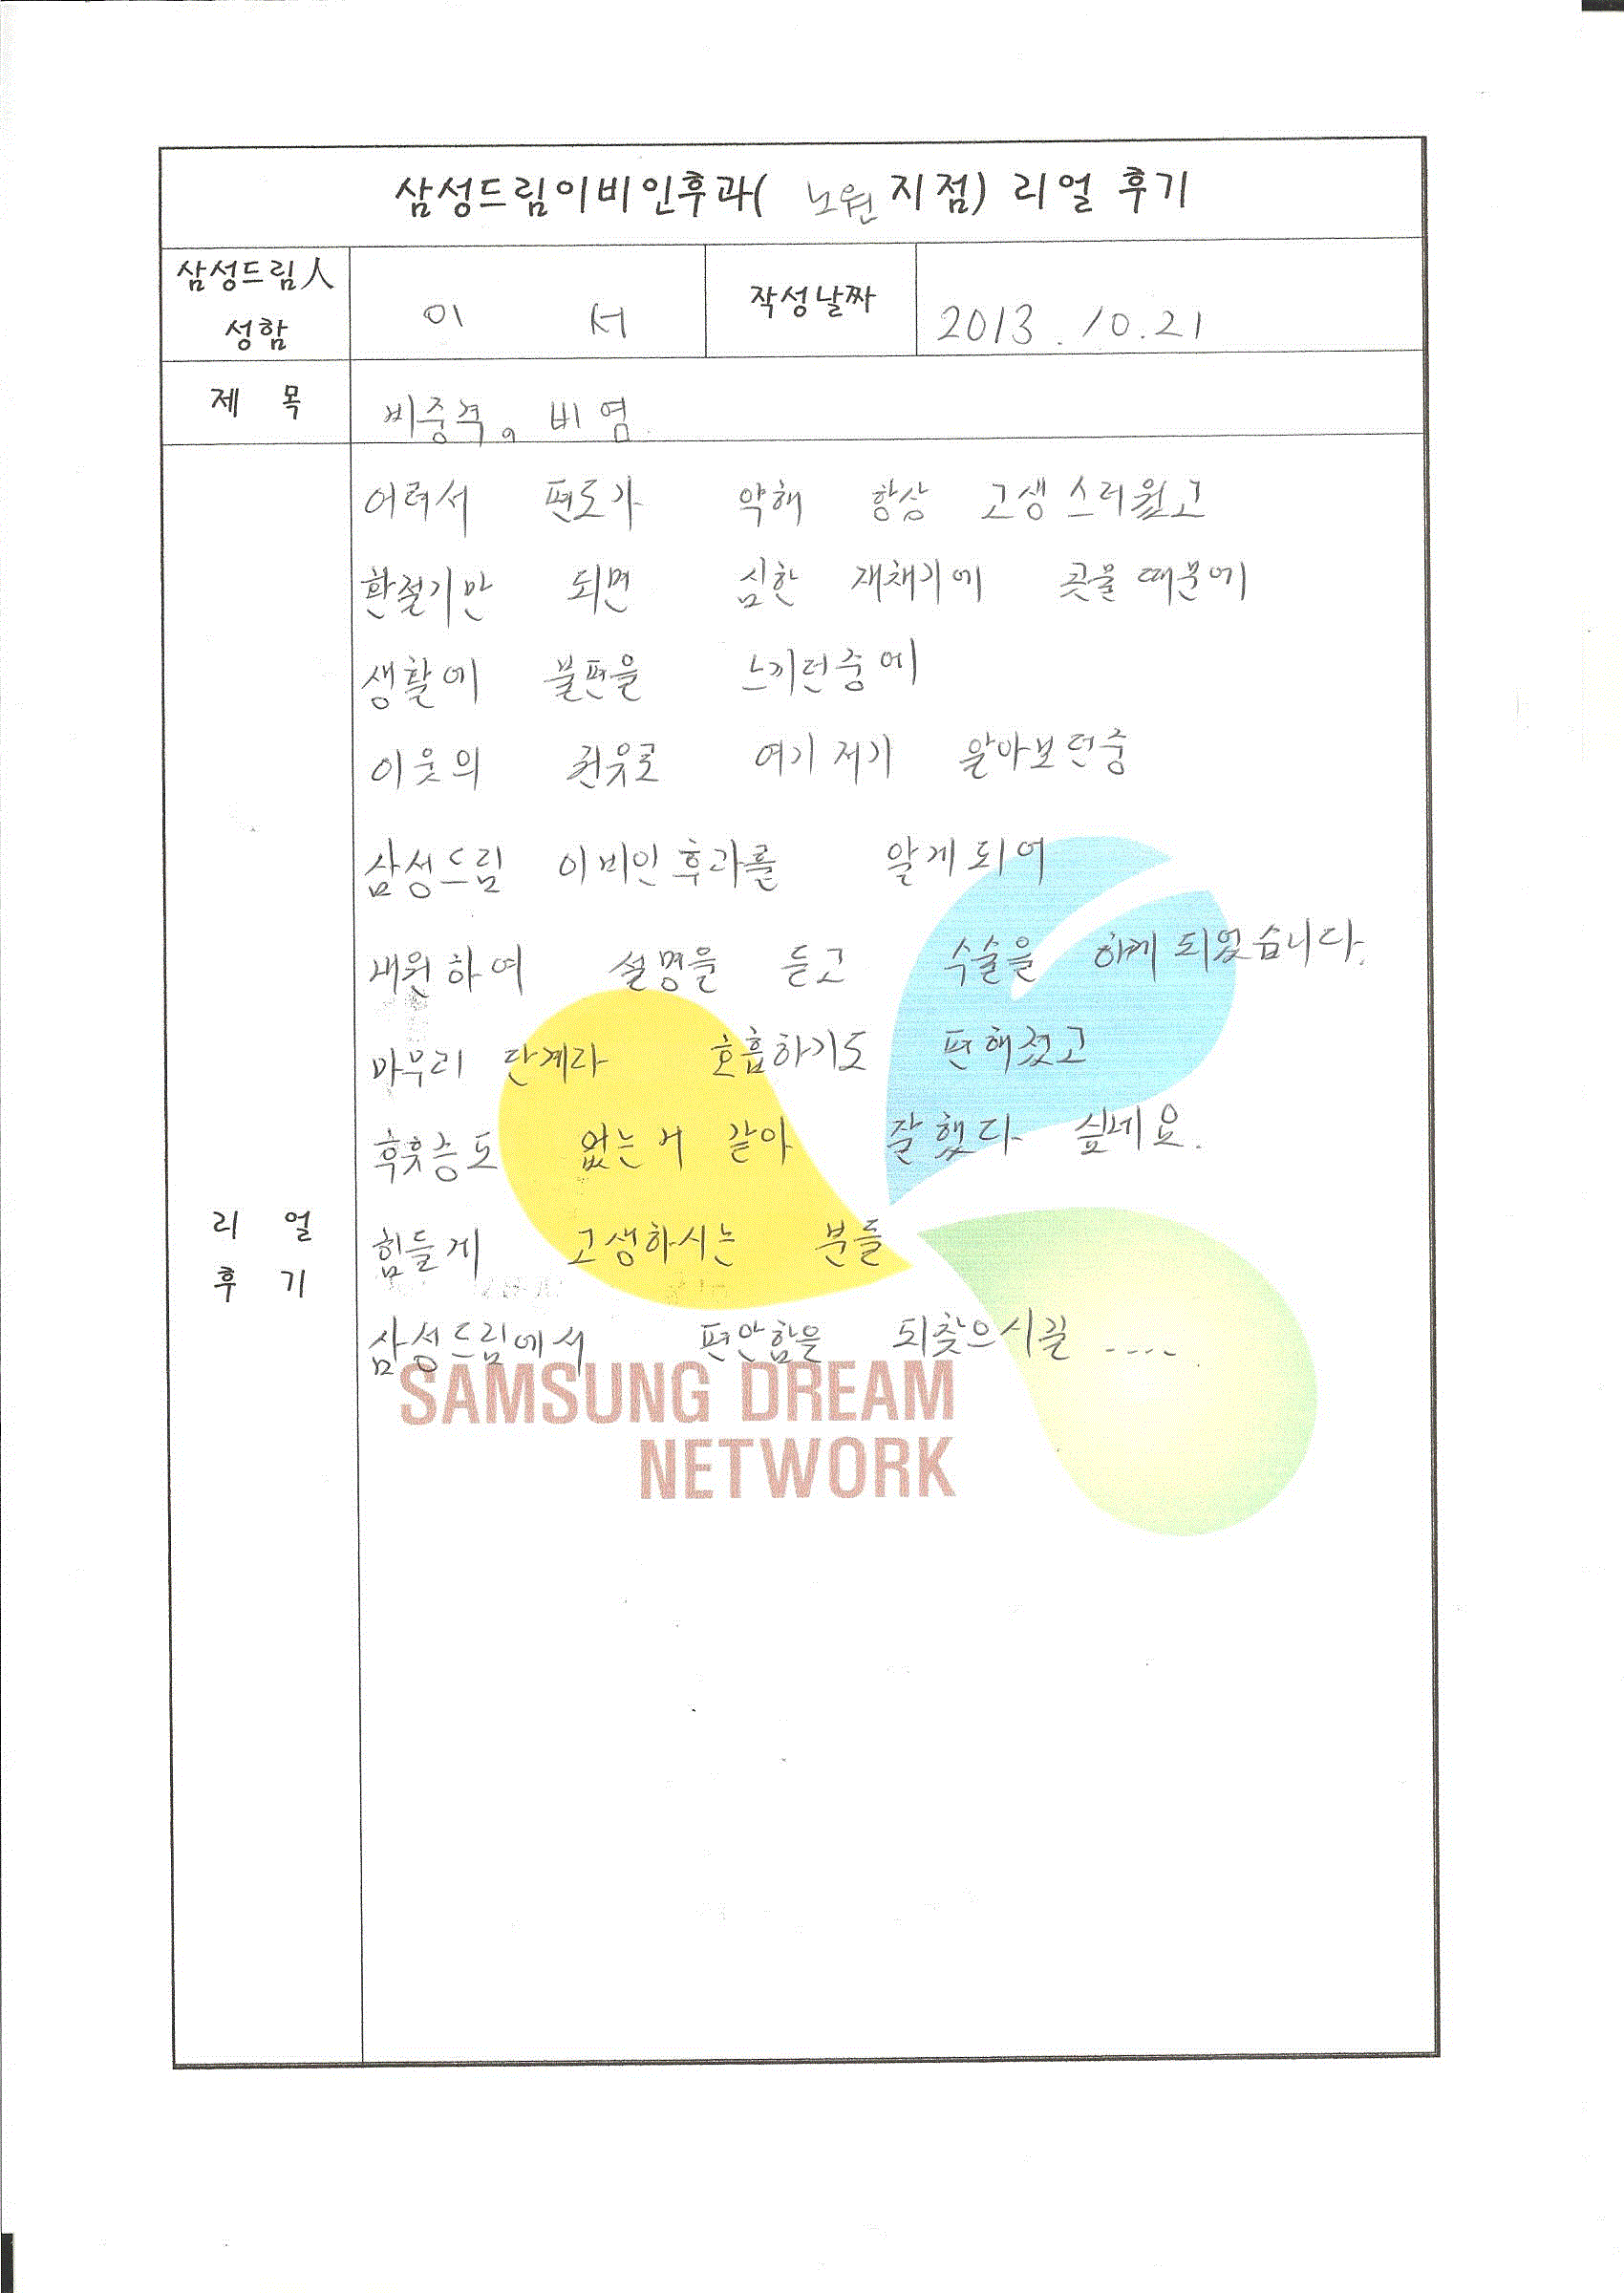 삼성드림이비인후과( 노원 지점) 리얼 후기
삼성드림人
성함
이 서
작성날짜
2013. 10. 21
제 목
비중격。 비염
어려서 편도가 약해 항상 고생스러웠고
환절기만 되면 심한 재채기에 콧물때문에
생활에 불편을 느끼던중에
이웃의 권유로 여기저기 알아보던중
삼성드림 이비인후과를 알게되어
내원하여 설명을 듣고 수술을 하게 되었습니다.
마무리 단계라 호흡하기도 편해졌고
후유증도 없는거 같아 잘했다 싶네요.
리 얼
후 기
힘들게 고생하시는 분들
삼성드림에서 편안함을 되찾으시길 .....
SAMSUNG DREAM
NETWORK